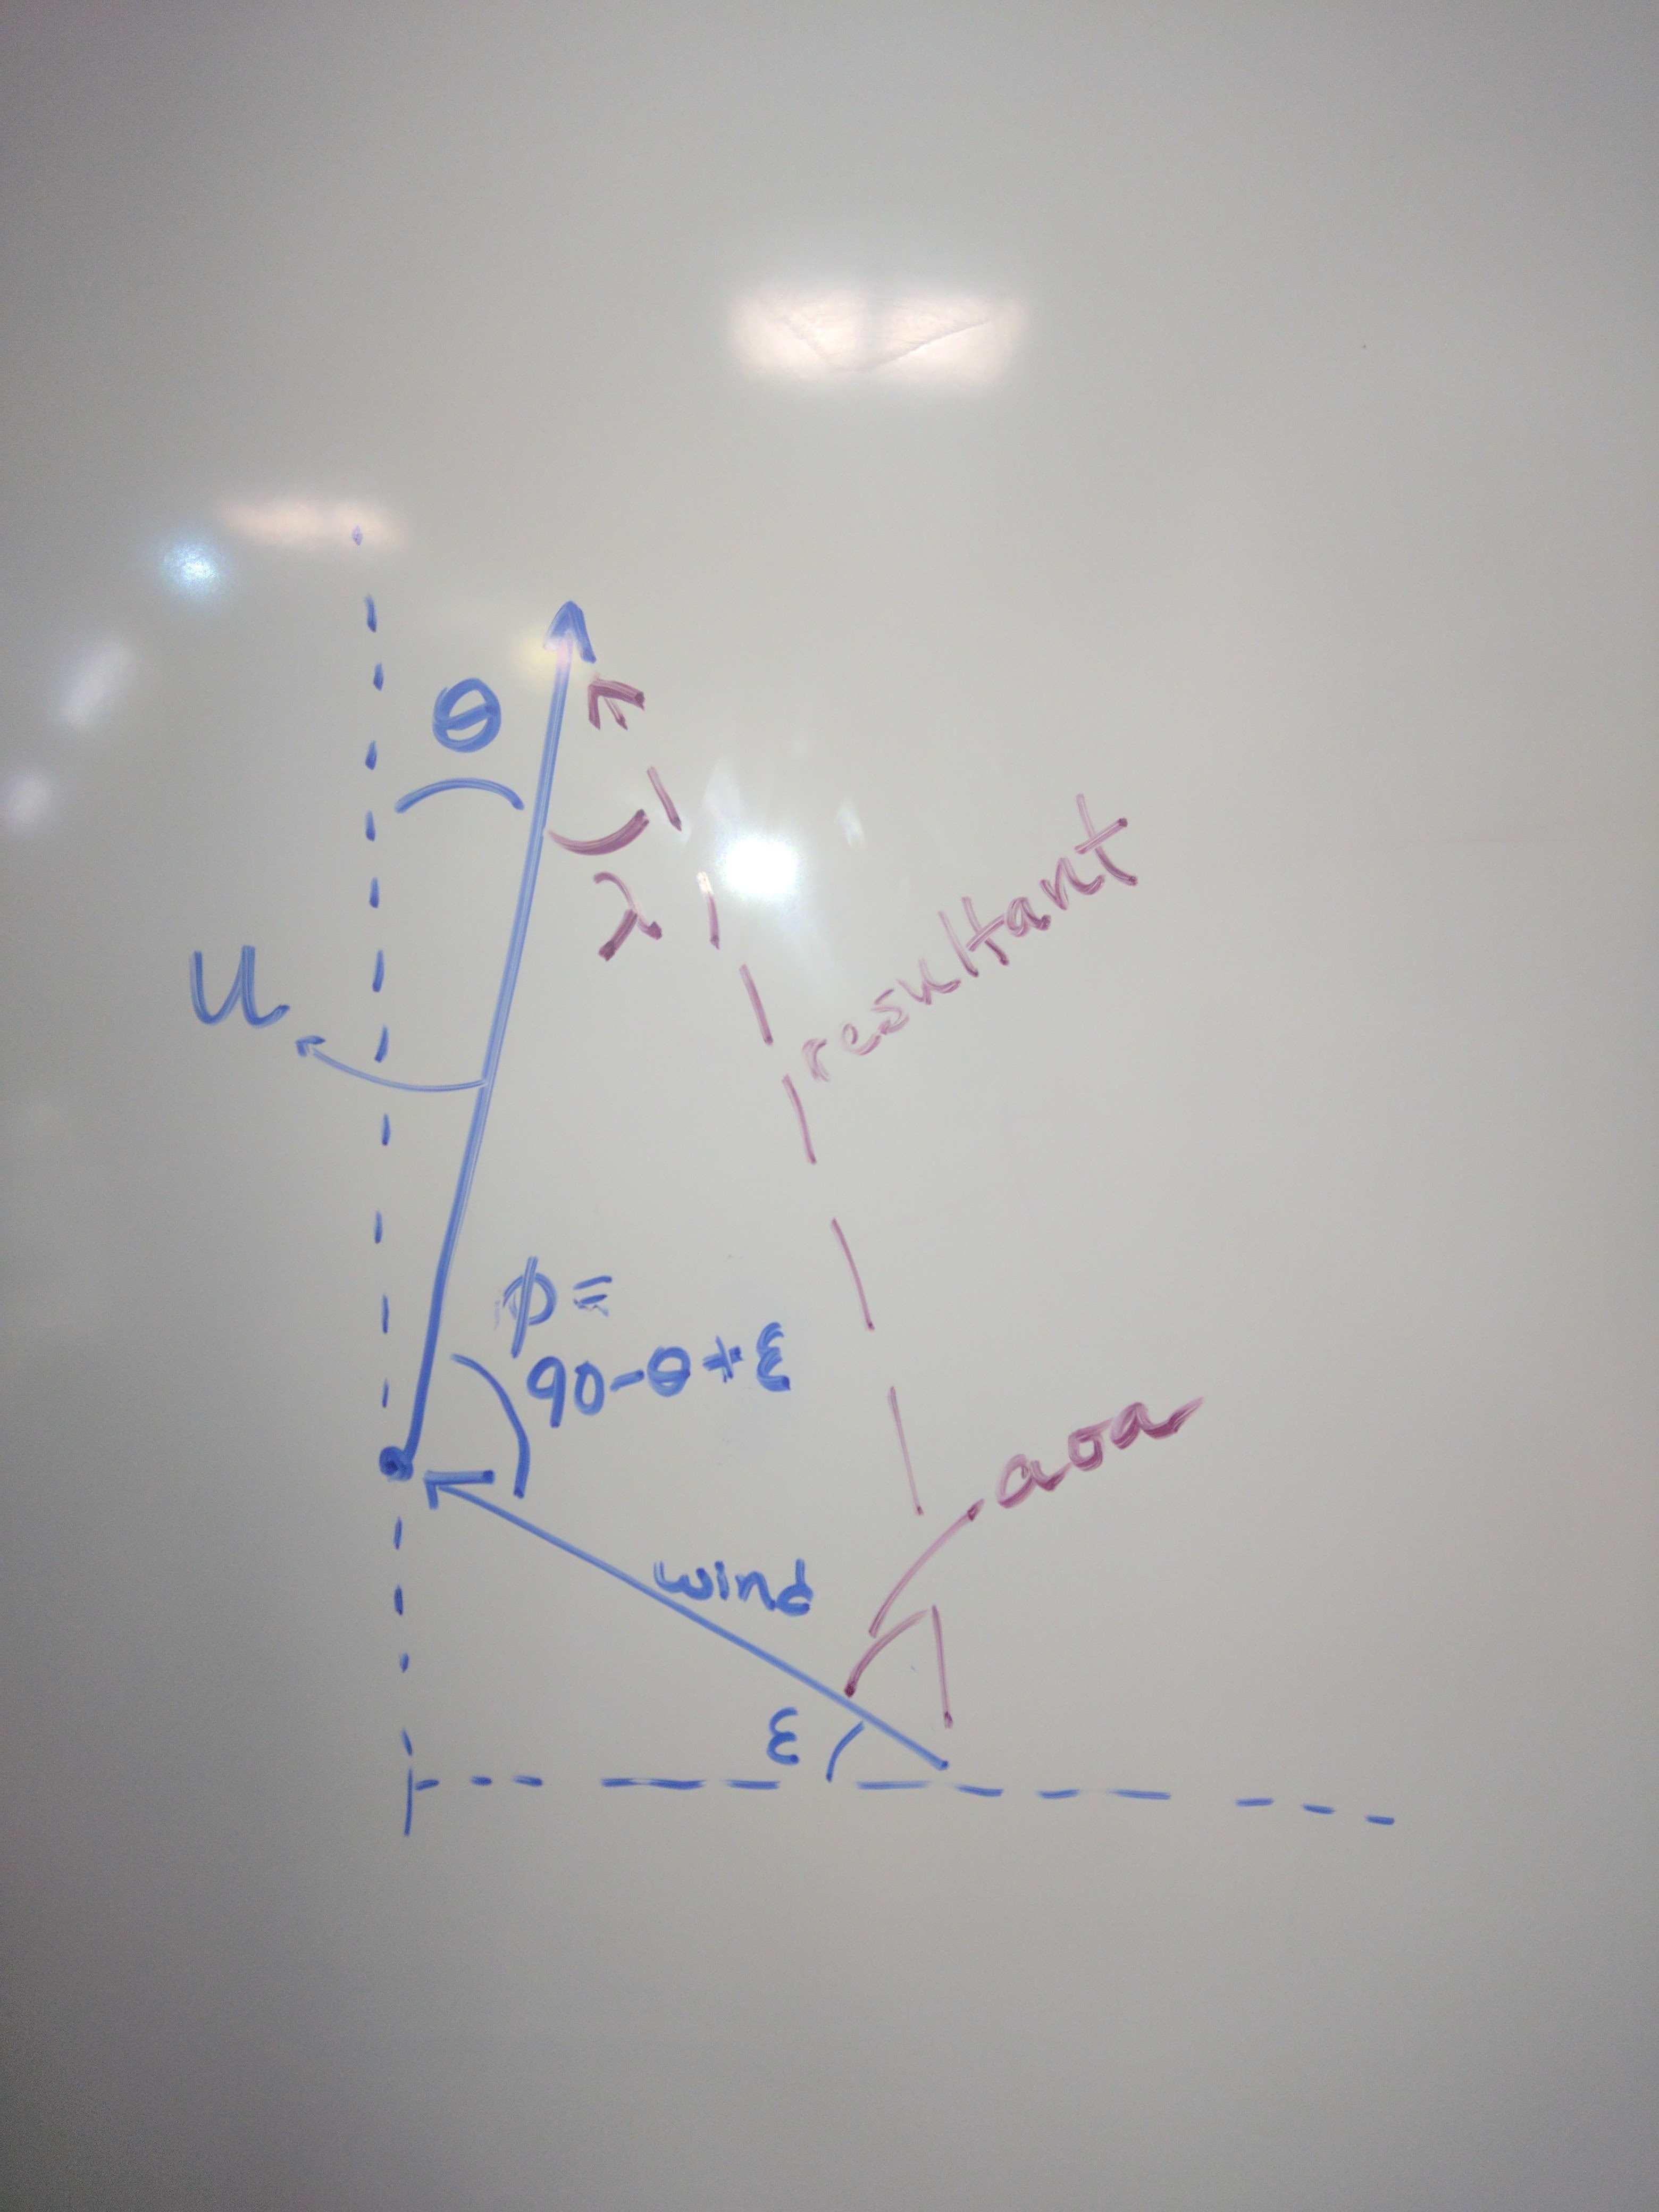 θ
λ
resultant
u
φ=
90-θ+ε
aoa
wind
ε